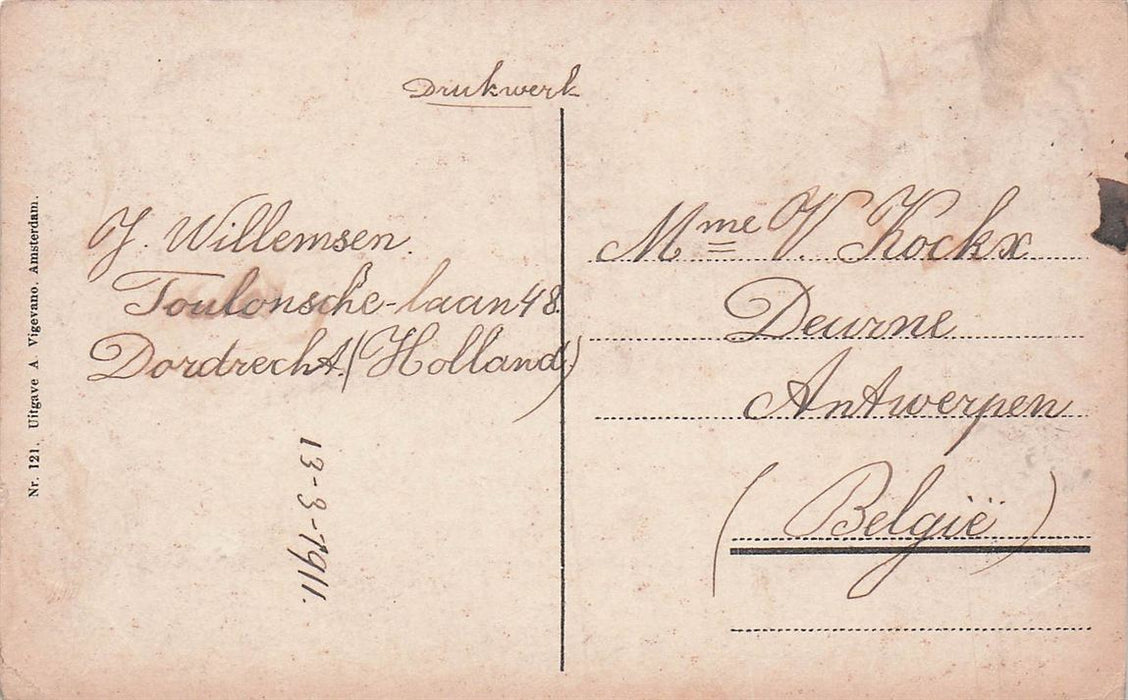 Drukwerk
J. Willemsen.
Toulonsche-laan 48.
Dordrecht. (Holland)
13-3-1911.
Nr. 121. Uitgave A. Vigevano. Amsterdam.
Mme V. Kockx
Deurne
Antwerpen
(België)